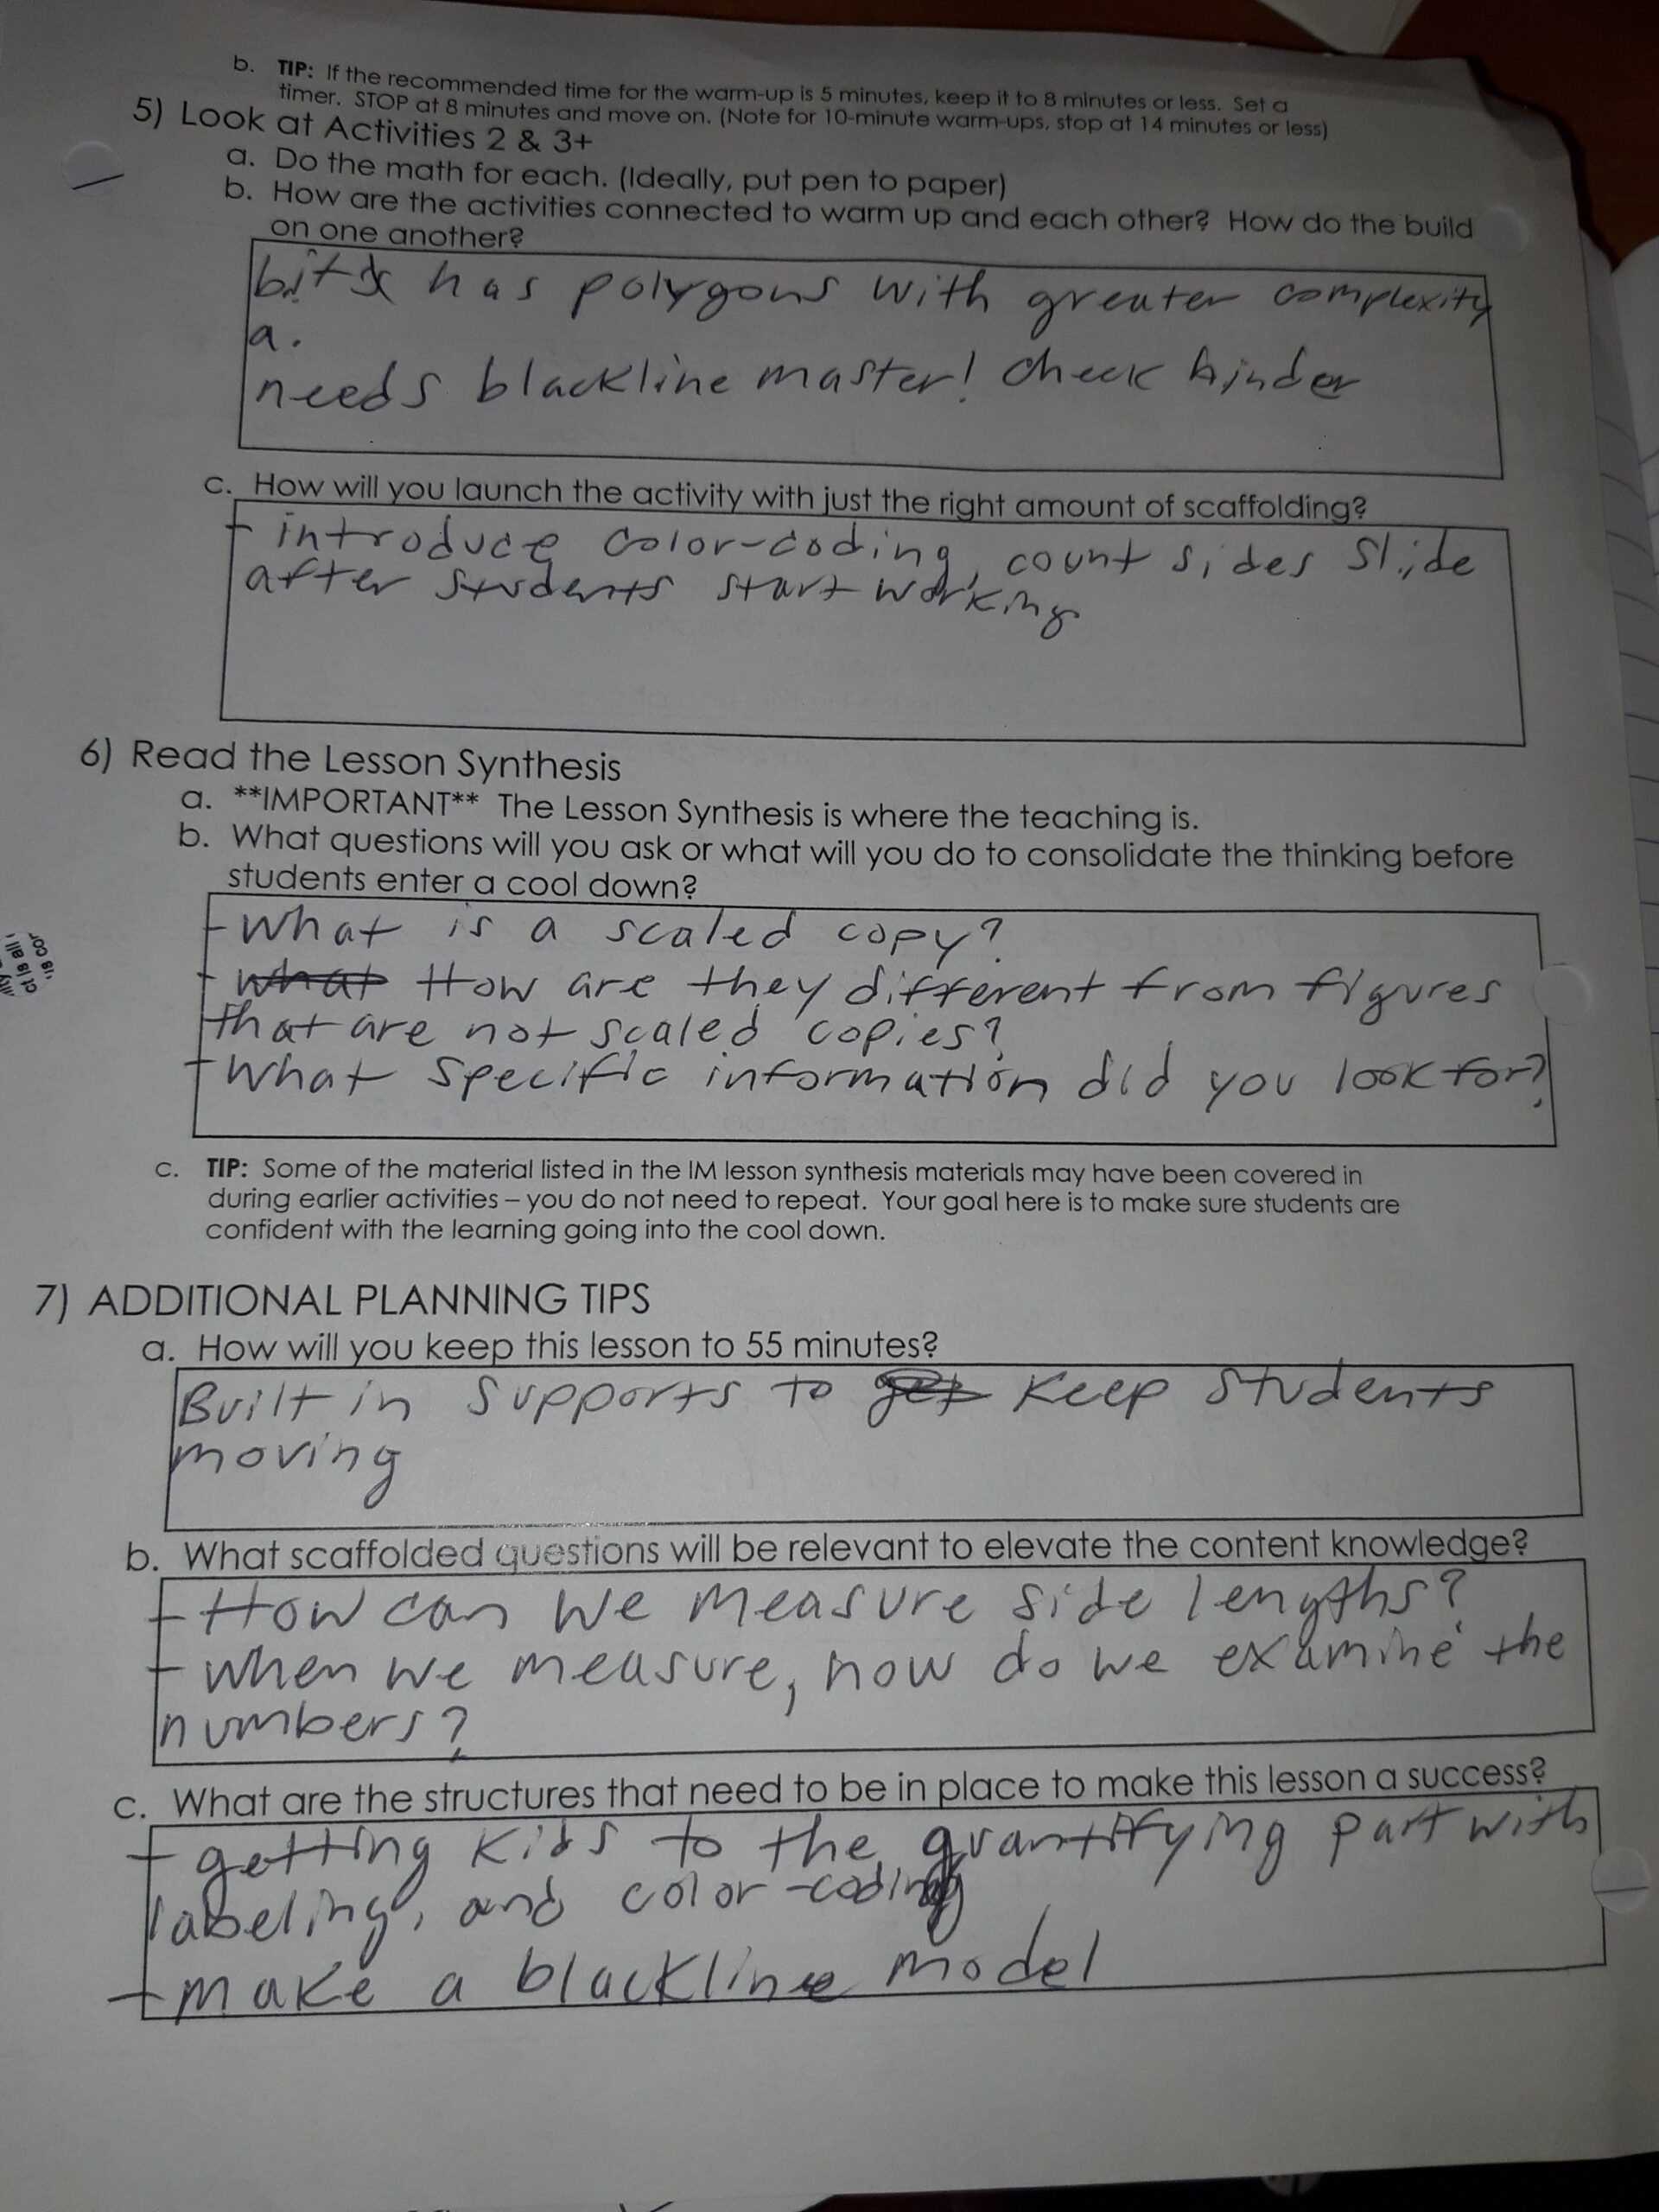 b. TIP: If the recommended time for the warm-up is 5 minutes, keep it to 8 minutes or less. Set a
timer. STOP at 8 minutes and move on. (Note for 10-minute warm-ups, stop at 14 minutes or less)
5) Look at Activities 2 & 3+
a. Do the math for each. (Ideally, put pen to paper)
b. How are the activities connected to warm up and each other? How do the build
on one another?
has polygons with greater complexity
a.
needs blackline master! check binder
c. How will you launch the activity with just the right amount of scaffolding?
- introduce color-coding, count sides slide
after students start working
6) Read the Lesson Synthesis
a. **IMPORTANT** The Lesson Synthesis is where the teaching is.
b. What questions will you ask or what will you do to consolidate the thinking before
students enter a cool down?
- What is a scaled copy?
- what How are they different from figures
that are not scaled copies?
- What specific information did you look for?
c. TIP: Some of the material listed in the IM lesson synthesis materials may have been covered in
during earlier activities – you do not need to repeat. Your goal here is to make sure students are
confident with the learning going into the cool down.
7) ADDITIONAL PLANNING TIPS
a. How will you keep this lesson to 55 minutes?
Built in supports to get keep students
moving
b. What scaffolded questions will be relevant to elevate the content knowledge?
- How can we measure side lengths?
- when we measure, how do we examine the
numbers?
c. What are the structures that need to be in place to make this lesson a success?
- getting kids to the quantifying part with
labeling, and color-coding
- make a blackline model